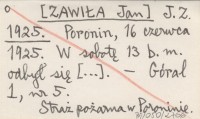 [ZAWIŁA Jan] J. Z.
1925. Poronin, 16 czerwca
1925. W sobotę 13 b. m.
odbył się [...]. — Góral
1, nr 5.
Straż pożarna w Poroninie.